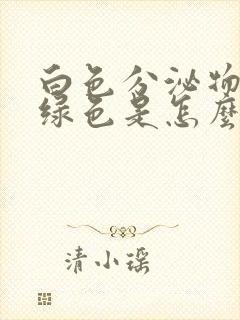 白色分泌物
绿色是怎麽
清小瑶